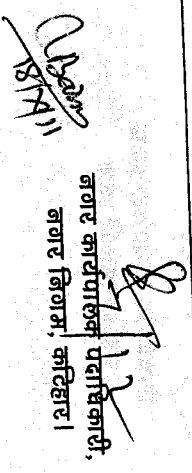 नगर कार्यपालक पदाधिकारी,
नगर निगम, कटिहार।
18/11